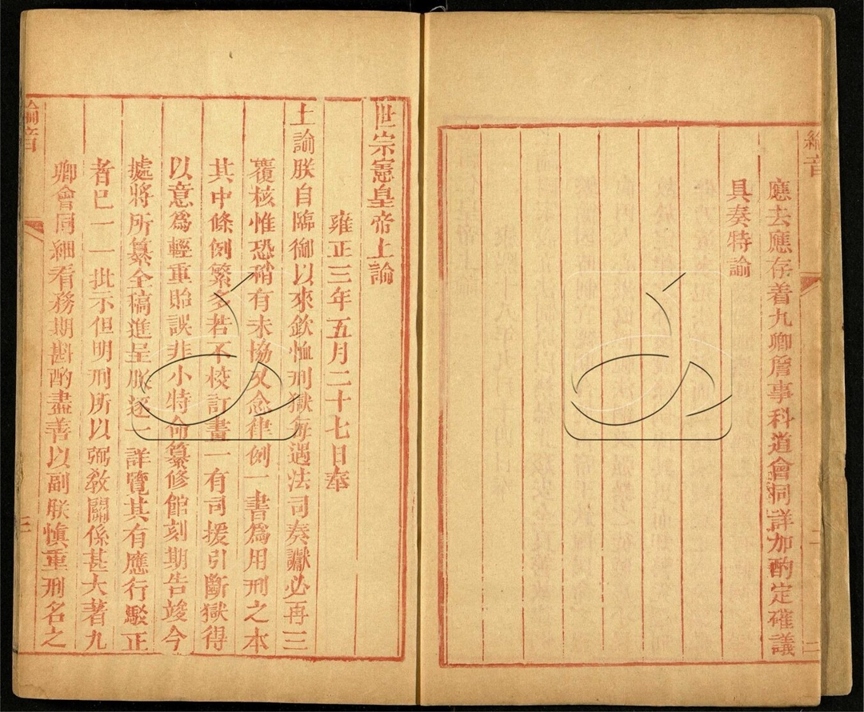 綸音
應去應存着九卿詹事科道會同詳加酌定確議
具奏特諭
二
世宗憲皇帝上諭
雍正三年五月二十七日奉
上諭朕自臨御以來欽恤刑獄每遇法司奏讞必再三
覆核惟恐稍有未協又念律例一書爲用刑之本
其中條例繁多若不校訂畫一有司援引斷獄得
以意爲輕重貽誤非小特命纂修館刻期告竣今
據將所纂全稿進呈朕逐一詳覽其有應行駁正
者已一一批示但明刑所以弼敎關係甚大著九
卿會同細看務期斟酌盡善以副朕愼重刑名之
綸音
三